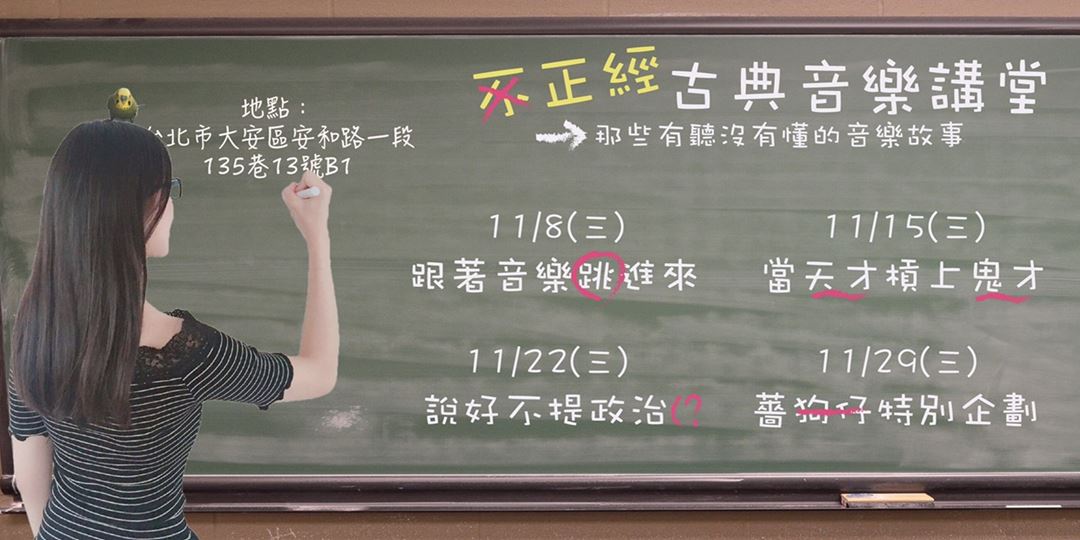 地點：
台北市大安區安和路一段
135巷13號B1
不正經古典音樂講堂
那些有聽沒有懂的音樂故事
11/8(三)
跟著音樂跳進來
11/15(三)
當天才槓上鬼才
11/22(三)
說好不提政治(?
11/29(三)
薔狗仔特別企劃